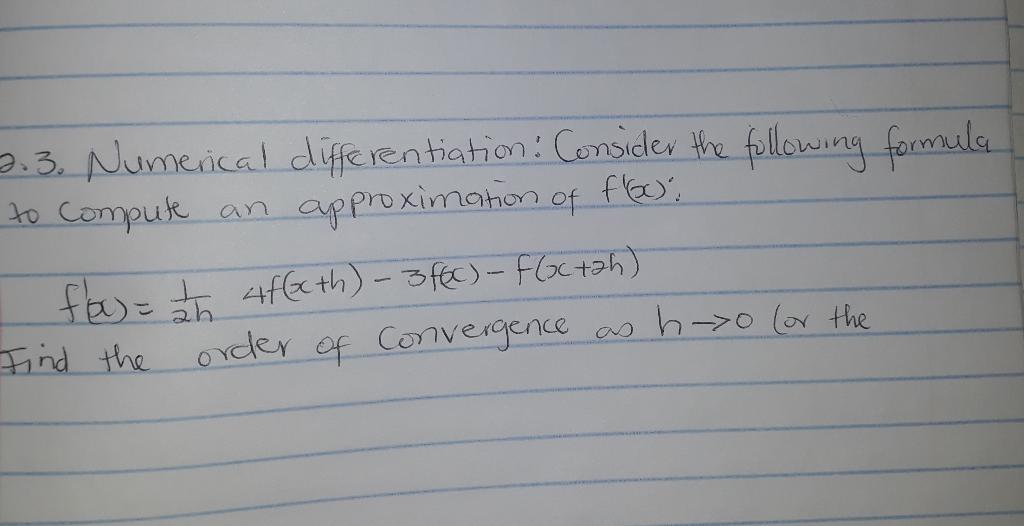 2.3. Numerical differentiation: Consider the following formula
to compute an approximation of f'(x):
f'(x) = 1/2h 4f(x+h) - 3f(x) - f(x+2h)
Find the order of convergence as h→0 (or the